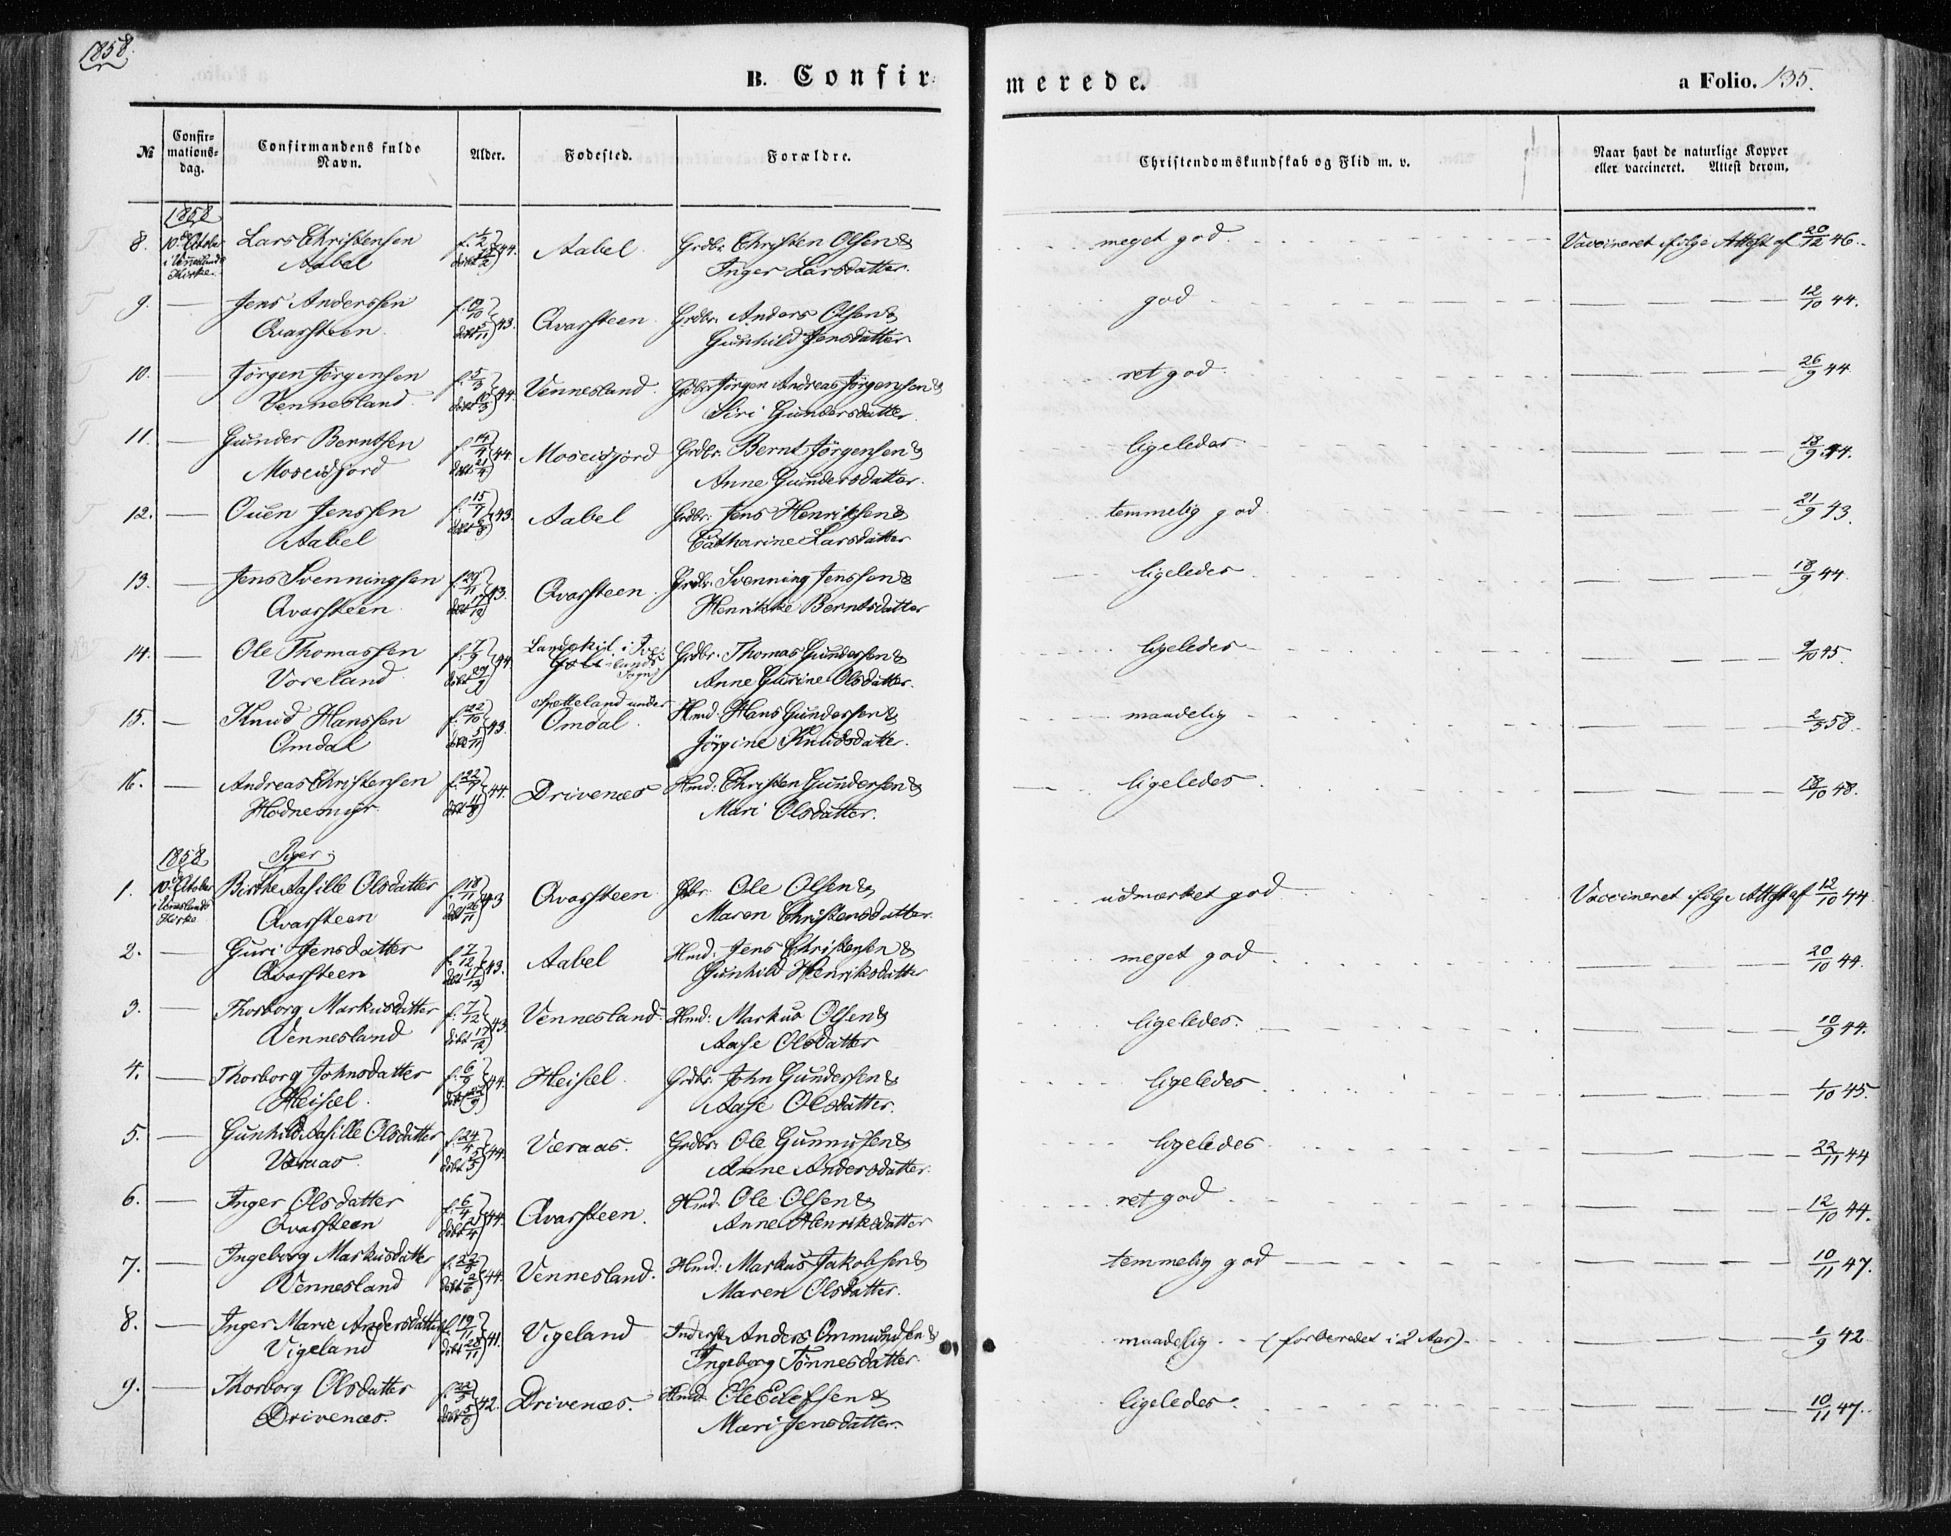 1858.
B. Confirmerede. a Folio. 135.
№ Confirmations-dag. Confirmandens fulde Navn. Alder. Fødested. Forældre. Christendomskundskab og Flid m. v. Naar havt de naturlige Kopper eller vaccineret. Attest derom.
1858
8. 10de October Lars Christensen f. 44. Aabel Grdbr. Christen Olsen & meget god. Vaccineret ifølge Attest af 20/12 46.
i Venneslands Kirke. Aabel døbt Inger Larsdatter.
9. — Jens Anderssen f. 43. Qvarsteen Grdbr. Anders Olsen & god — 12/10 44.
Qvarsteen døbt Gunhild Jensdatter.
10. — Jørgen Jørgensen f. 5/3 44. Vennesland. Grdbr. Jørgen Andreas Jørgensen & ret god — 26/9 44
Vennesland døbt Siri Gundersdatter.
11. — Gunder Berntsen f. 14/4 44. Moseidjord Grdbr. Bernt Jørgensen & ligeledes — 18/9 44.
Moseidjord døbt 21/4 Anne Gundersdatter.
12. — Ouen Jenssen f. 15/7 43. Aabel Grdbr. Jens Henriksen & temmelig god — 21/9 43.
Aabel døbt 6/8 Catharine Larsdatter
13. — Jens Svenningsen f. 29/11 43. Qvarsteen Grdbr. Svenning Jenssen & ligeledes — 18/9 44.
Qvarsteen døbt 17/12 Henrikke Berntsdatter
14. — Ole Thomassen f. 7/9 44. Grdbr. Thomas Gundersen & ligeledes — 9/10 45.
Voreland døbt 29/9 Sogn Anne Gurine Olsdatter.
15. — Knud Hanssen f. 22/10 43. Spetteland under Omdal. Hmd. Hans Gundersen & maadelig — 2/3 58.
Omdal døbt 5/11 Jörgine Knudsdatter.
16. — Andreas Christensen f. 22/7 44. Drivenæs Hmd. Christen Gundersen & ligeledes — 18/10 48.
Hodnemyr døbt 11/8 Mari Olsdatter.
1858 Piger:
1. 10de October Birthe Aasille Olsdatter f. 18/11 43 Qvarsteen Grdbr. Ole Olsen & udmærket god Vaccineret ifølge Attest af 12/10 44
i Venneslands Kirke Qvarsteen døbt 26/11 Maren Christensdatter.
2. — Guri Jensdatter f. 7/12 43. Aabel Hmd. Jens Christensen & meget god — 20/10 44.
Qvarsteen døbt 17/12 Gunhild Henriksdatter
3. — Thorborg Markusdatter f. 7/12 43 Vennesland. Hmd: Markus Olsen & ligeledes. — 10/9 44.
Vennesland døbt 17/12 Aase Olsdatter
4. — Thorborg Johnsdatter f. 6/9 44. Heisel Grdbr. John Gundersen & ligeledes — 1/10 45.
Heisel. døbt Aase Olsdatter.
5. — Gunhild Aasille Olsdatter f. 24/4 44. Væraas. Grdbr. Ole Gunnufsen & ligeledes — 22/11 44
Væraas. døbt 5/5 Anne Andersdatter.
6. — Inger Olsdatter f. 6/4 44. Qvarsteen. Hmd. Ole Olsen & ret god — 12/10 44.
Qvarsteen døbt 21/4 Anne Henriksdatter
7. — Ingeborg Markusdatter f. 44. Vennesland. Hmd: Markus Jakobsen & temmelig god — 10/11 47.
Vennesland døbt Maren Olsdatter.
8. — Inger Marie Andersdatter f. 19/11 41. Vigeland Inderst Anders Ommundsen & maadelig. (forberedet i 2 Aar). — 1/9 42.
Vigeland døbt 28/11 Ingeborg Tønnesdatter
9. — Thorborg Olsdatter f. 22/5 42. Drivenæs. Hmd Ole Eilefsen & ligeledes. — 10/11 47.
Drivenæs. døbt 5/6 Mari Jensdatter.